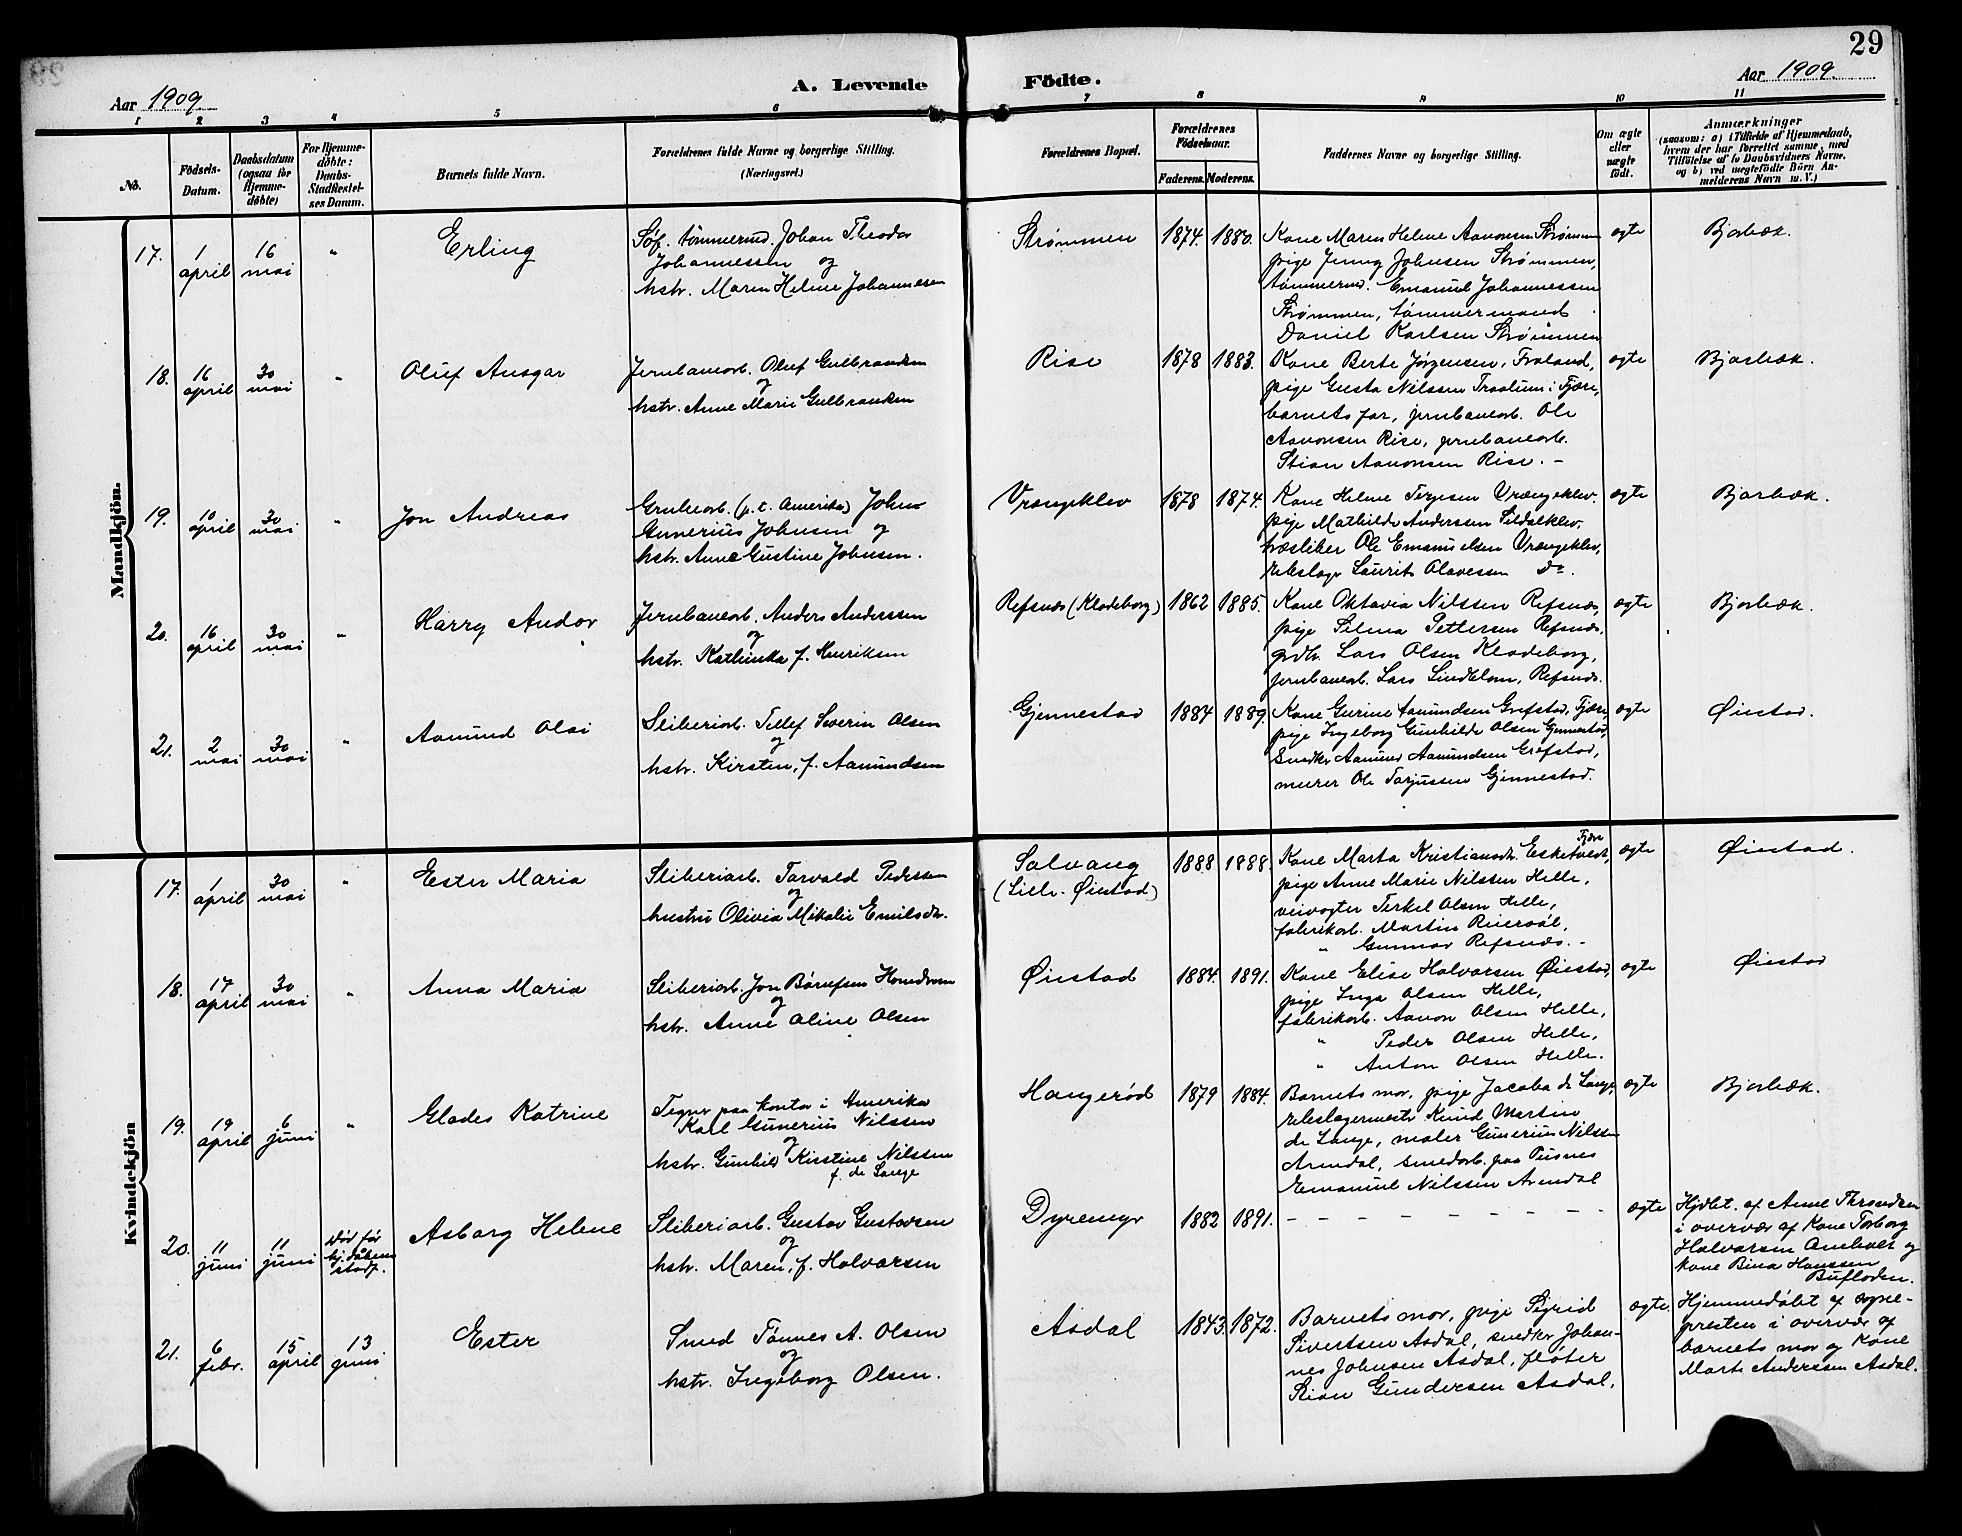 29
A. Levende Födte.
Aar 1909
Aar 1909.
1 2 3 4 5 6 7 8 9 10 11
No.
Födsels-
Datum.
Daabsdatum
(ogsaa for
Hjemme-
döbte)
For Hjemme-
döbte:
Daabs-
Stadfæstel-
ses Datum.
Barnets fulde Navn.
Forældrenes fulde Navne og borgerlige Stilling.
(Næringsvei.)
Forældrenes Bopæl.
Forældrenes
Födselsaar.
Faderens. Moderens.
Faddernes Navne og borgerlige Stilling.
Om ægte
eller
uægte
födt.
Anmærkninger
(saasom: a) i Tilfælde af Hjemmedaab,
hvem der har forrettet samme, med
Tilföielse af to Daabsvidners Navne,
og b) ved uægtefödte Börn An-
melderens Navn m. V.)
Mandkjön.
17.
1
april
16
mai
"
Erling
Søf. tømmermd. Johan Theodor
Johannessen og
hstr. Maren Helene Johannesen
Strømmen
1874. 1880.
Kone Maren Helene Aanonsen Strømmen
pige Jenny Johnsen Strømmen,
tømmermd. Emanuel Johannessen
Strømmen, tømmermand
Daniel Karlsen Strømmen
ægte
Bjorbæk.
18.
16
april
30
mai
"
Oluf Ansgar
Jernbanearb. Oluf Gulbrandsen
og
hstr. Anne Marie Gulbrandsen
Rise
1878 1883.
Kone Berte Jørgensen, Froland,
pige Gusta Nilssen Traalum i Fjære,
barnets far, jernbanearb. Ole
Aanonsen Rise, jernbanearb.
Stian Aanonsen Rise. –
ægte
Bjorbæk.
19.
10
april
30
mai
"
Jon Andreas
Grubearb. (p.t. Amerika) John
Gunerius Johnsen og
hstr. Anne Gustine Johnsen.
Vrængeklev
1878 1874.
Kone Helene Terjesen Vrængeklev.
pige Mathilde Anderssen Sildalklev,
træsliber Ole Emanuelsen Vrængeklev,
rebslager Laurits Olavessen do.
ægte
Bjorbæk.
20.
16
april
30
mai
"
Harry Andor
Jernbanearb. Anders Anderssen
og
hstr. Kathinka f. Henriksen
Refsnes (Klodeborg)
1862 1885.
Kone Oktavia Nilssen Refsnes,
pige Selma Pettersen Refsnes,
grdbr. Lars Olsen Klodeborg,
jernbanearb. Lars Lindblom, Refsnes.
ægte
Bjorbæk.
21.
2
mai
30
mai
"
Aamund Olai
Sliberiarb. Tellef Severin Olsen
og
hstr. Kirsten, f. Aamundsen
Gjennestad
1884 1889.
Kone Gurine Aamundsen Grefstad, Fjære,
pige Ingeborg Gunhilde Olsen Gjennestad,
Snedker Aamund Aamundsen Grefstad,
murer Ole Tarjussen Gjennestad.
ægte
Øiestad.
Kvindekjön
17.
1
april
30
mai
"
Ester Maria
Sliberiarb. Torvald Pedersen
og
hustru Olivia Mikalie Emilsdtr.
Solvang
(Lille-Øiestad)
1888 1888.
Kone Marta Kristiansdtr. Esketvedt, Fjære
pige Anne Marie Nilssen Helle,
veivogter Terkel Olsen Helle,
fabrikarb. Martin
" Gunnar Refsnes. –
ægte
Øiestad.
18.
17
april
30
mai
"
Anna Maria
Sliberiarb. Jon Børufsen Homdrom
og
hstr. Anne Oline Olsen
Øiestad
1884. 1891.
Kone Elise Halvorsen Øiestad,
pige Inga Olsen Helle,
fabrikarb. Aanon Olsen Helle,
" Peder Olsen Helle,
" Anton Olsen Helle.
ægte
Øiestad
19.
19
april
6
juni
"
Glades Katrine
Tegner paa kontor i Amerika
Karl Gunerius Nilssen
og
hstr. Gunhild Kirstine Nilssen
f. de Lange
Haugerød
1879 1884.
Barnets mor, pige Jacoba de Lange,
rebslagermester Knud Martin
de Lange, maler Gunerius Nilssen
Arendal, smedarb. paa Pusnes
Emanuel Nilssen Arendal
ægte
Bjorbæk.
20.
11
juni
11
juni
Død før
hj.dåbens
stadf.
Asborg Helene
Sliberiarb. Gustav Gustavsen
og
hstr. Maren, f. Halvorsen
Dyremyr
1882 1891.
– – – – – – – – –
ægte
Hjdbt. af Anne Throndsen
i overvær af Kone Torborg
Halvorsen og
kone Bina Hanssen
Bufloden.
21.
6
febr.
15
april
13
juni
Ester
Smed Tønnes A. Olsen
og
hstr. Ingeborg Olsen.
Asdal
1843. 1872.
Barnets mor, pige Sigrid
Sivertsen Asdal, snedker Johan-
nes Johnsen Asdal, fløter
Stian Gundersen Asdal.
ægte.
Hjemmedøbt af sogne-
presten i overvær af
barnets mor og Kone
Marte Anderssen Asdal.